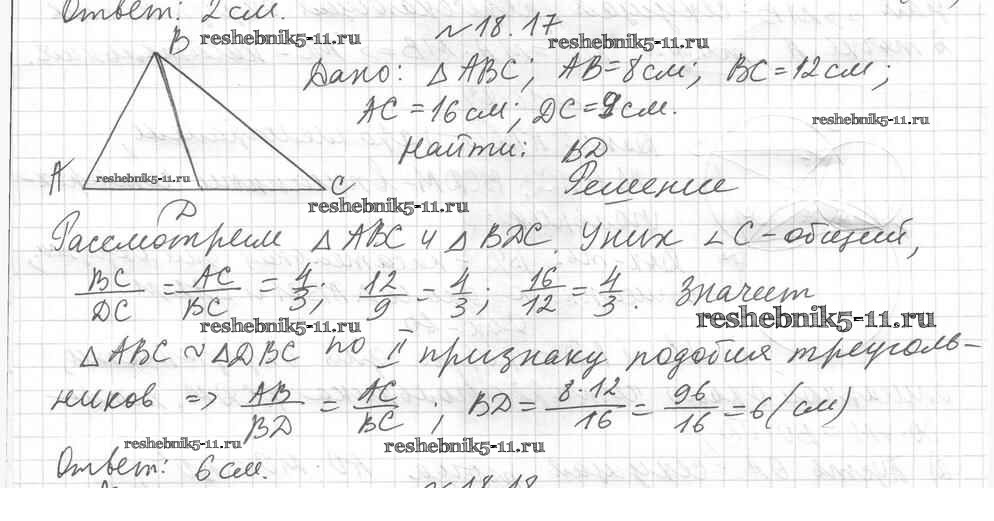 Ответ: 2 см.
B
reshebnik5-11.ru
№ 18.17
reshebnik5-11.ru
Дано: △ ABC; AB = 8 см; BC = 12 см;
AC = 16 см; DC = 9 см.
reshebnik5-11.ru
Найти: BD
A
reshebnik5-11.ru
C
Решение
reshebnik5-11.ru
D
Рассмотрим △ ABC и △ BDC. У них ∠C - общий,
BC/DC = AC/BC = 4/3; 12/9 = 4/3; 16/12 = 4/3. Значит
reshebnik5-11.ru
reshebnik5-11.ru
△ ABC ~ △DBC по II признаку подобия треуголь-
ников => AB/BD = AC/BC; BD = 8·12/16 = 96/16 = 6 (см)
reshebnik5-11.ru
reshebnik5-11.ru
Ответ: 6 см.
№ 18.18